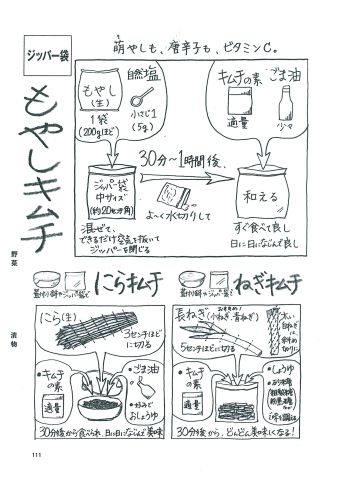 ジッパー袋
もやしキムチ
萌やしも、唐辛子も、ビタミンC。
もやし
(生)
1袋
(200gほど)
自然塩
小さじ1
(5g)
キムチの素
適量
ごま油
少々
30分～1時間後、
ジッパー袋
中サイズ
(約20センチ角)
よ〜く水切りして
和える
混ぜて、
できるだけ空気を抜いて
ジッパーを閉じる
すぐ食べて良し
日に日になじんで良し
野菜
漬物
にらキムチ
にら(生)
3センチほど
に切る
・キムチ
の素
適量
・ごま油
・好みで
おしょうゆ
30分後から食べられ、日に日になじんで美味
ねぎキムチ
おすすめ!
長ねぎ(小ねぎ・青ねぎ)
5センチほどに切る
太い
白ねぎは
斜め
切りに
・キムチ
の素
適量
・しょうゆ
30分後から、どんどん美味しくなる!
111